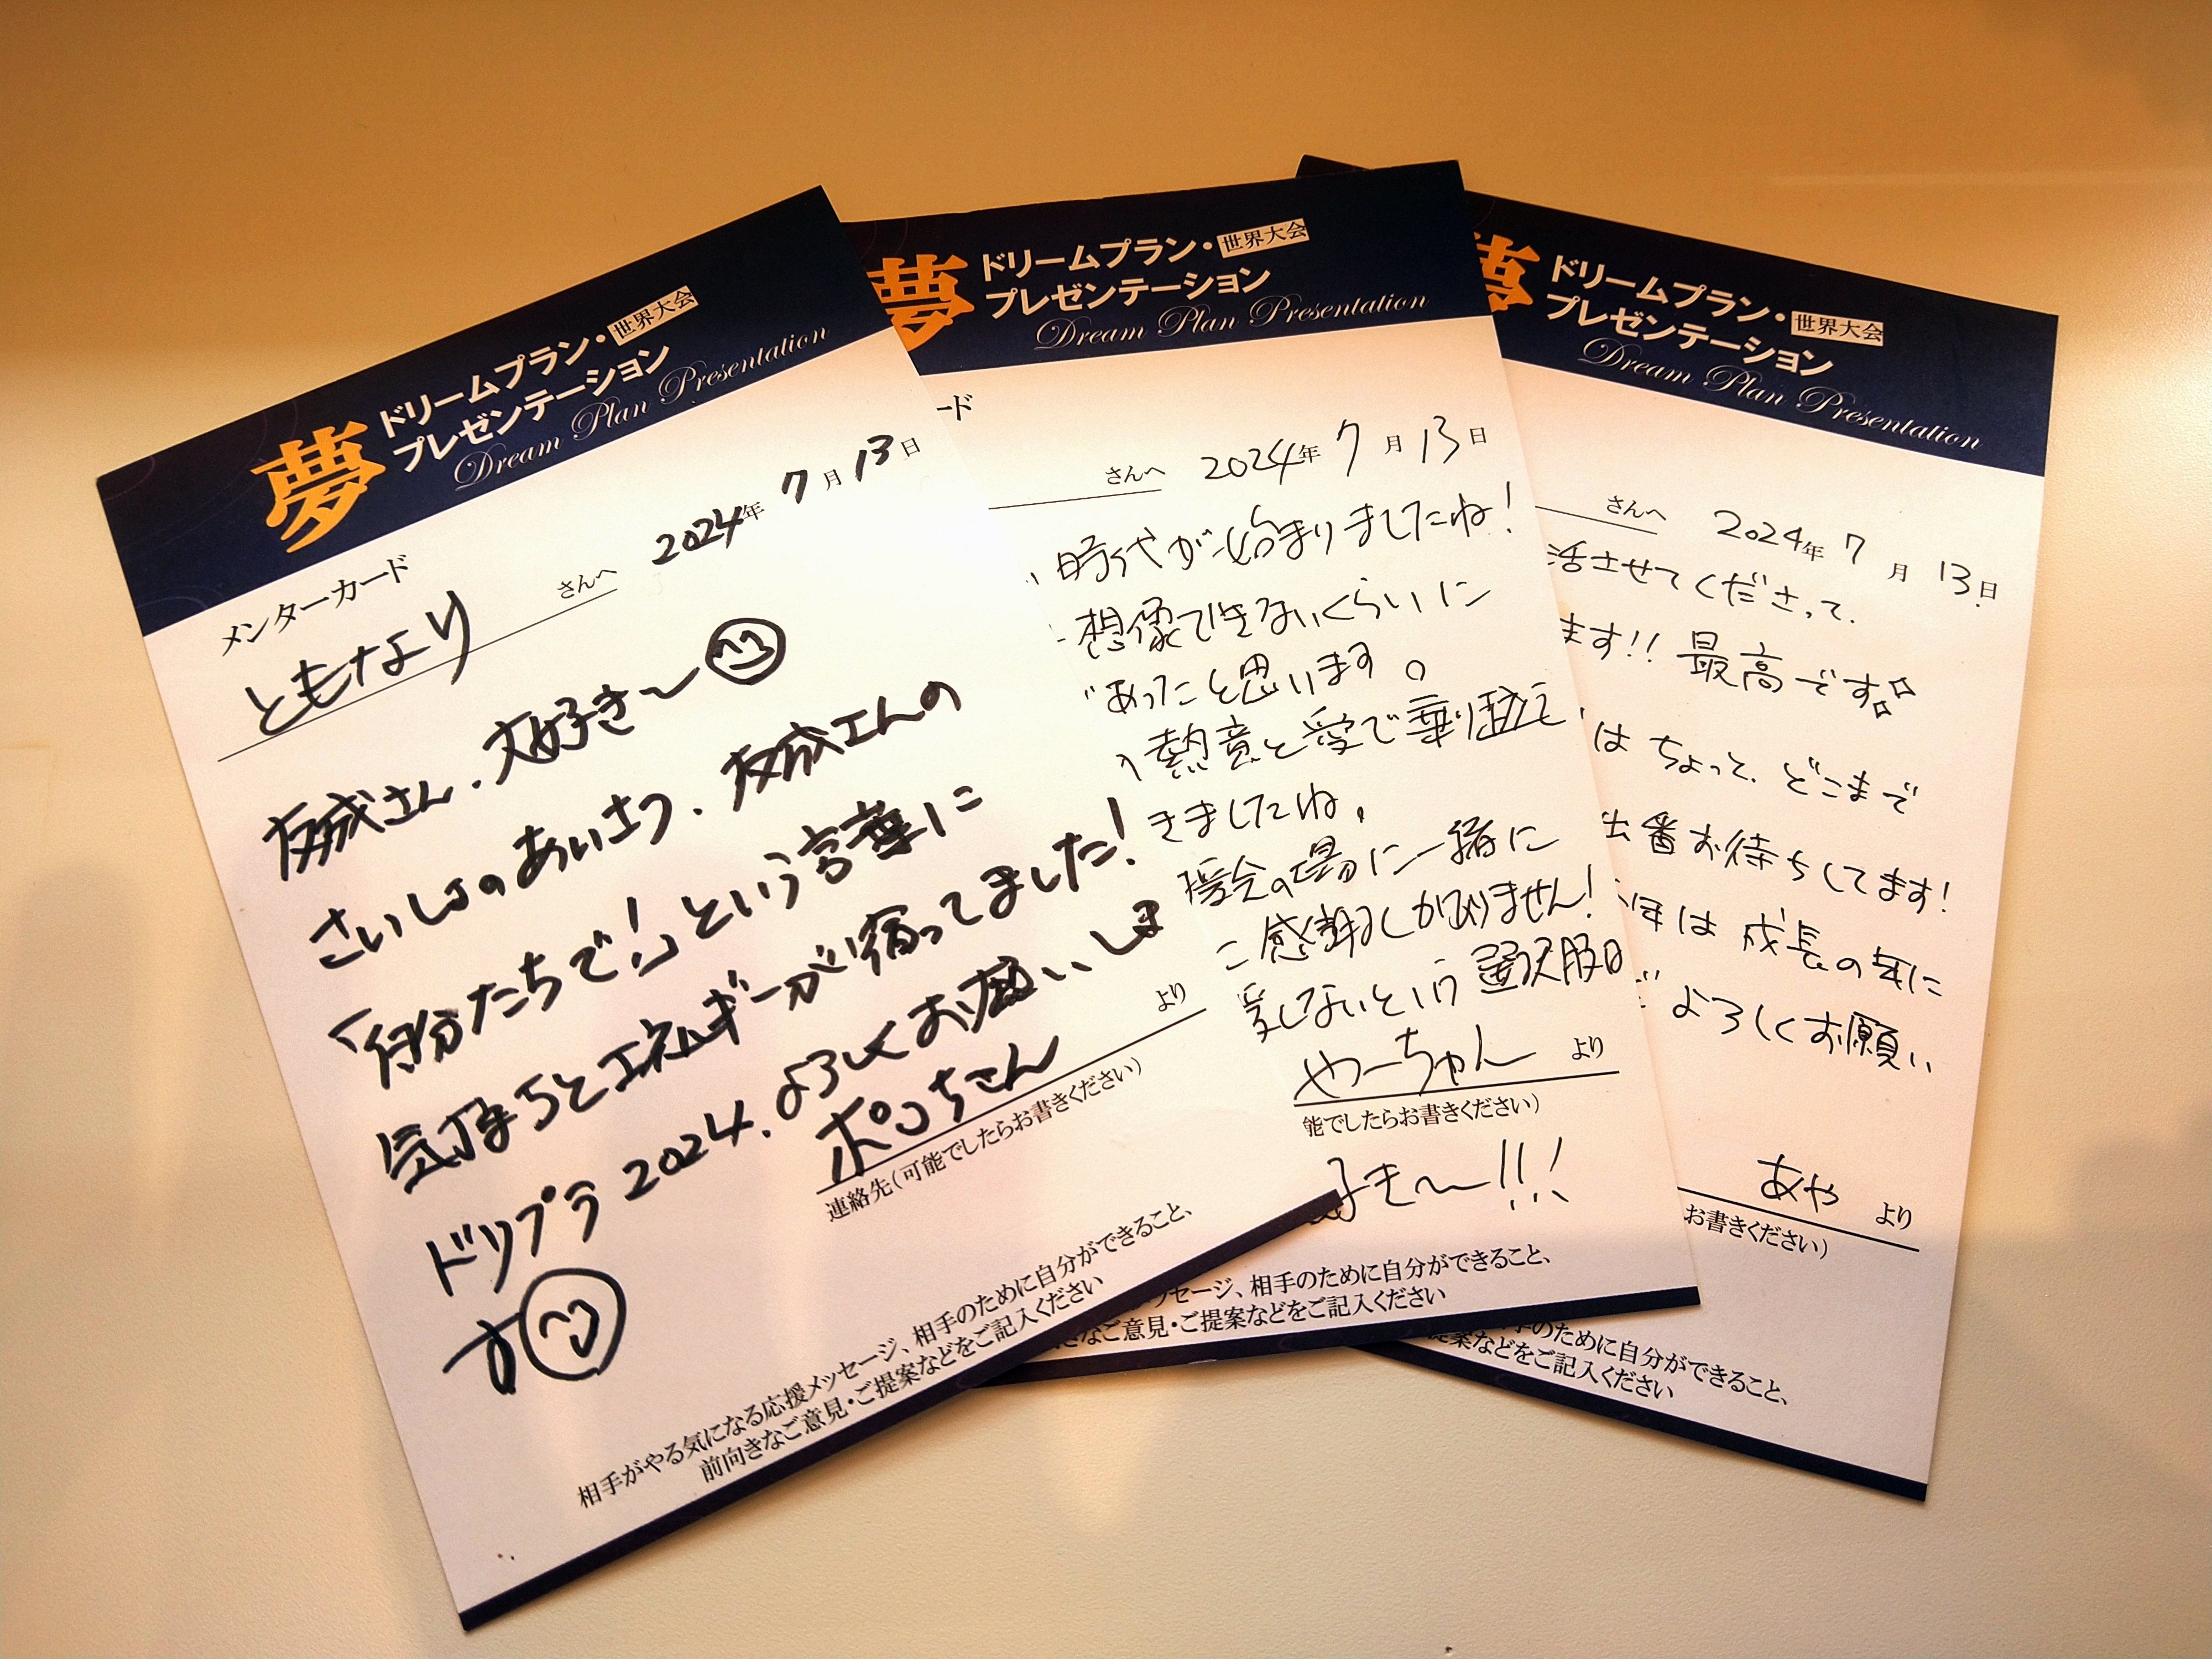 夢
ドリームプラン・世界大会
プレゼンテーション
Dream Plan Presentation
メンターカード
ともなり さんへ 2024年 7月 13日
友成さん、大好き〜
さいしょのあいさつ、友成さんの
「自分たちで!」という言葉に
気持ちとエネルギーが宿ってました!
ドリプラ 2024、よろしくお願いしま
す
ポンちさん より
連絡先(可能でしたらお書きください)
相手がやる気になる応援メッセージ、相手のために自分ができること、
前向きなご意見・ご提案などをご記入ください
夢
ドリームプラン・世界大会
プレゼンテーション
Dream Plan Presentation
ード
さんへ 2024年 7月 13日
時代が始まりましたね!
想像できないくらいに
あったと思います。
熱意と愛で乗り越え
きましたね。
援会の場に一緒に
感謝しかありません!
しないという選択肢
やーちゃん より
能でしたらお書きください)
好き〜!!!
メッセージ、相手のために自分ができること、
きなご意見・ご提案などをご記入ください
夢
ドリームプラン・世界大会
プレゼンテーション
Dream Plan Presentation
さんへ 2024年 7月 13日
活させてくださって、
ます!! 最高です
は ちょっと、どこまで
出番お待ちしてます!
年は 成長の年に
よろしくお願い
あや より
お書きください)
手のために自分ができること、
提案などをご記入ください